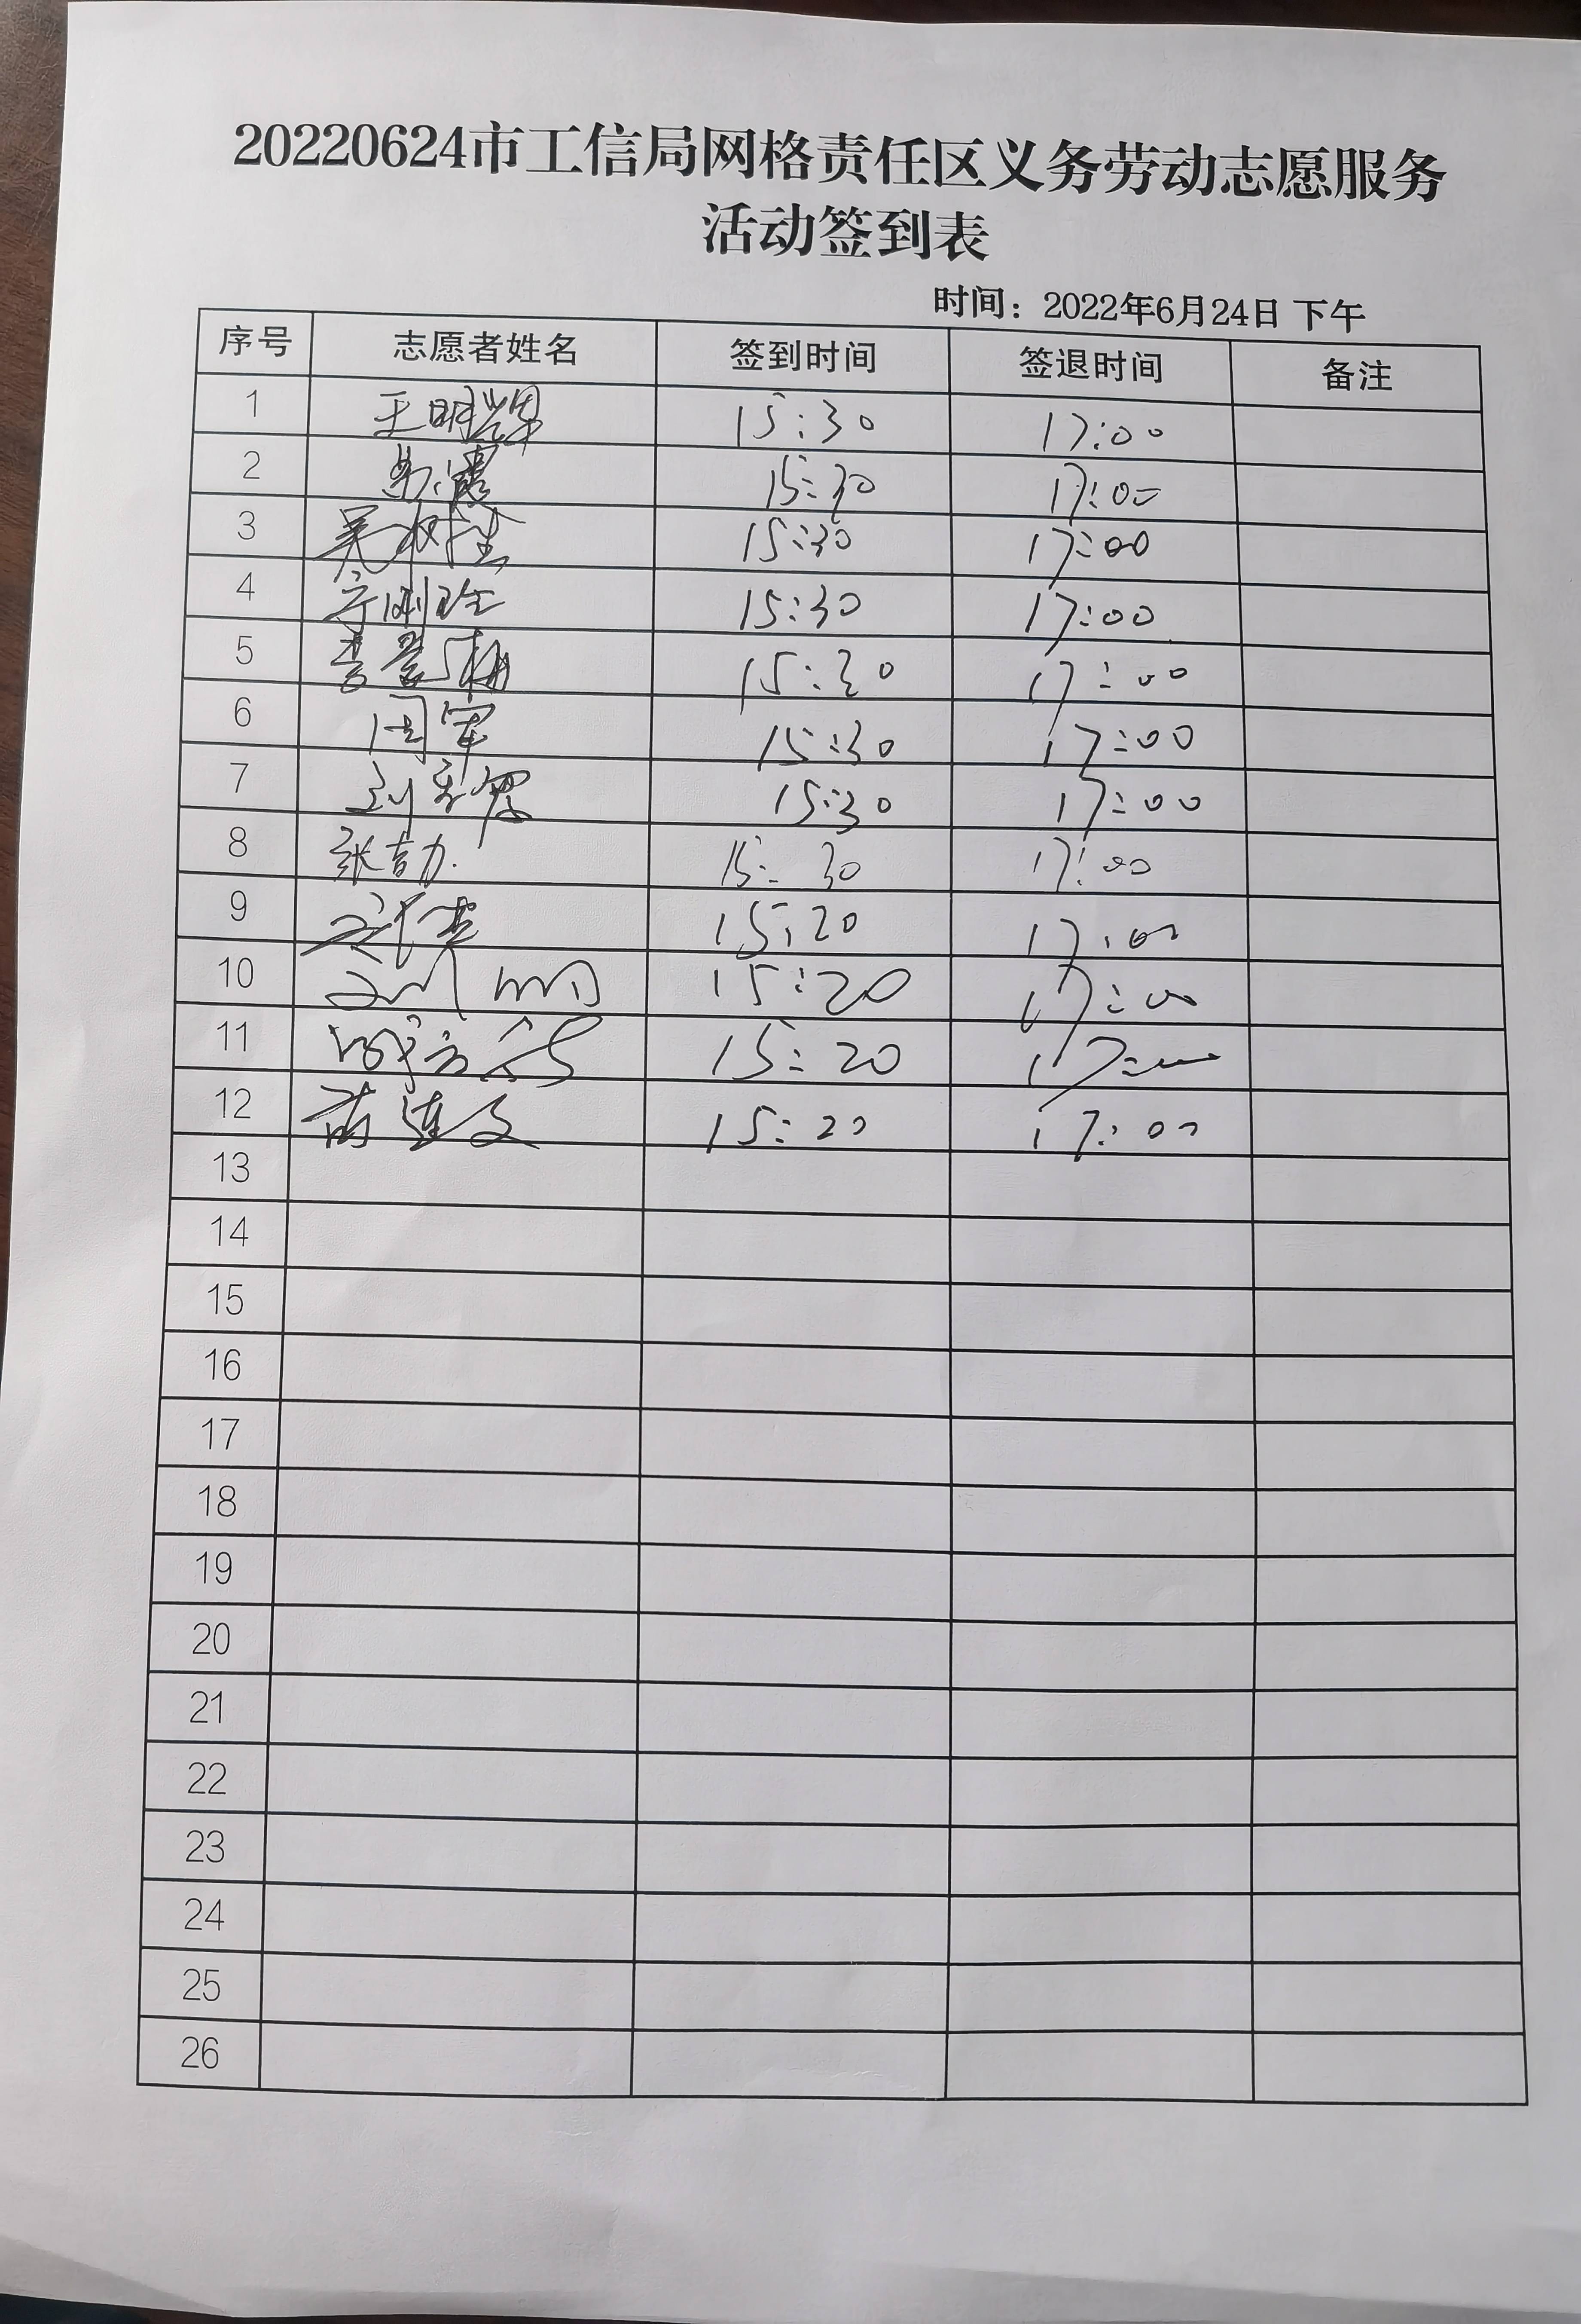 20220624市工信局网格责任区义务劳动志愿服务
活动签到表
时间：2022年6月24日 下午
序号 志愿者姓名 签到时间 签退时间 备注
1 王明辉 15:30 17:00
2 15:30 17:00
3 15:30 17:00
4 15:30 17:00
5 15:30 17:00
6 周军 15:30 17:00
7 15:30 17:00
8 张吉力 15:30 17:00
9 15:20 17:00
10 15:20 17:00
11 15:20 17:00
12 15:20 17:00
13
14
15
16
17
18
19
20
21
22
23
24
25
26